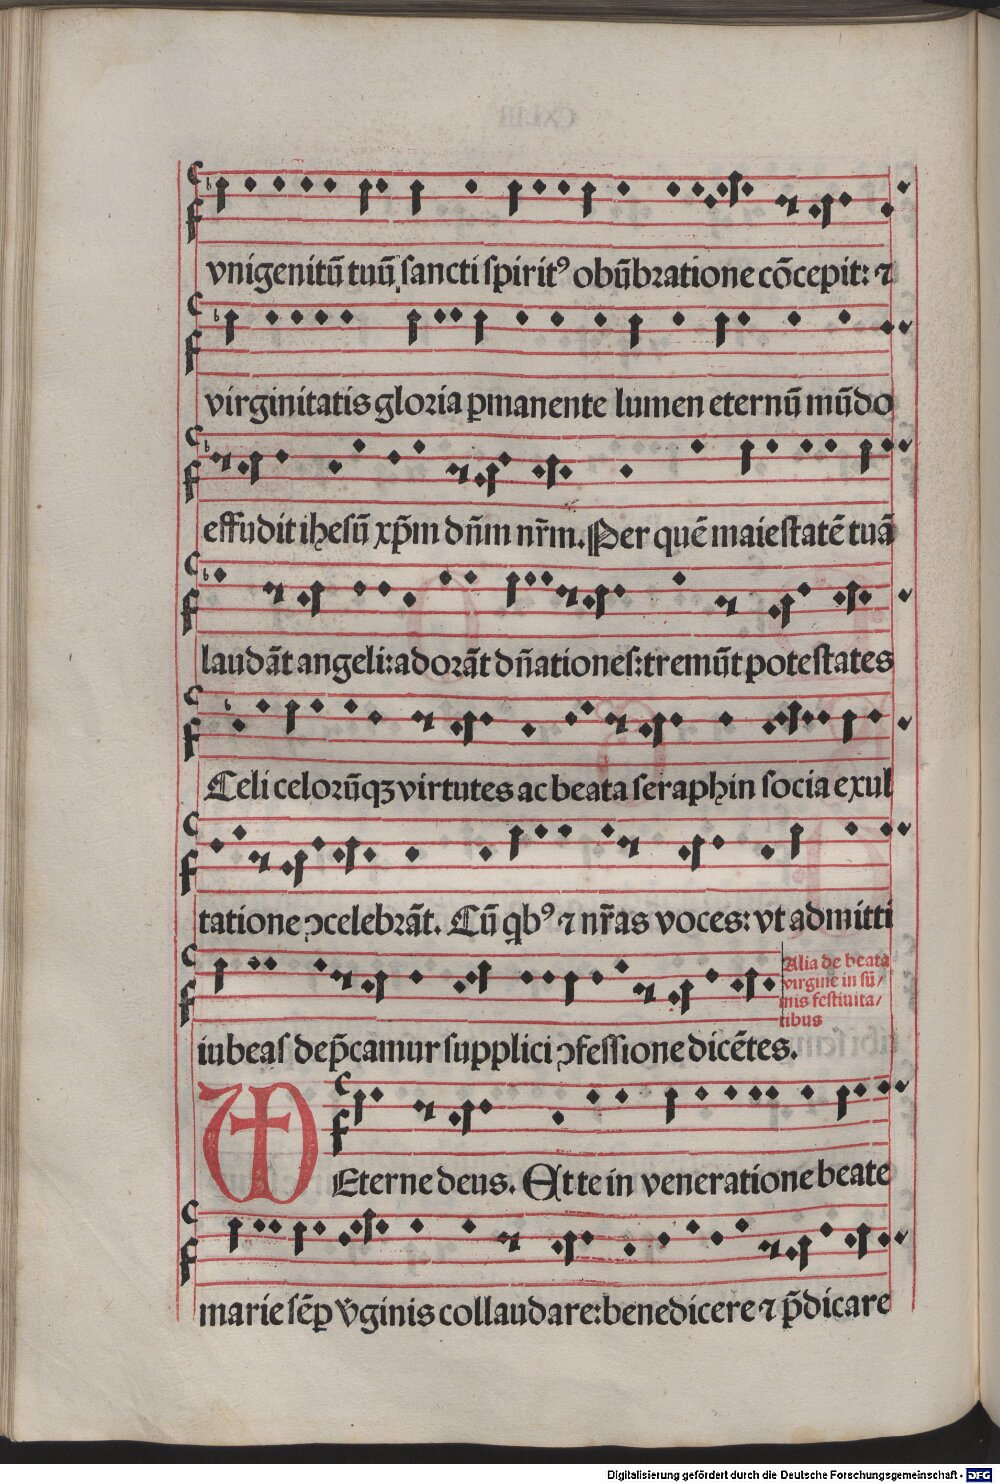 vnigenitū tuū sancti spiritꝰ obūbratione cōcepit: ⁊
virginitatis gloria ꝑmanente lumen eternū mūdo
effudit ihesū xp̄m dn̄m nr̄m. Per quē maiestatē tuā
laudāt angeli: adorāt dn̄ationes: tremūt potestates
Celi celorūqꝫ virtutes ac beata seraphin socia exul
tatione ↄcelebrāt. Cū qbꝰ ⁊ nr̄as voces: vt admitti
Alia de beata
virgine in sū/
mis festiuita/
tibus
iubeas dep̄camur supplici ↄfessione dicētes.
Eterne deus. Et te in veneratione beate
marie sēꝑ v̄ginis collaudare: benedicere ⁊ p̄dicare
Digitalisierung gefördert durch die Deutsche Forschungsgemeinschaft - DFG